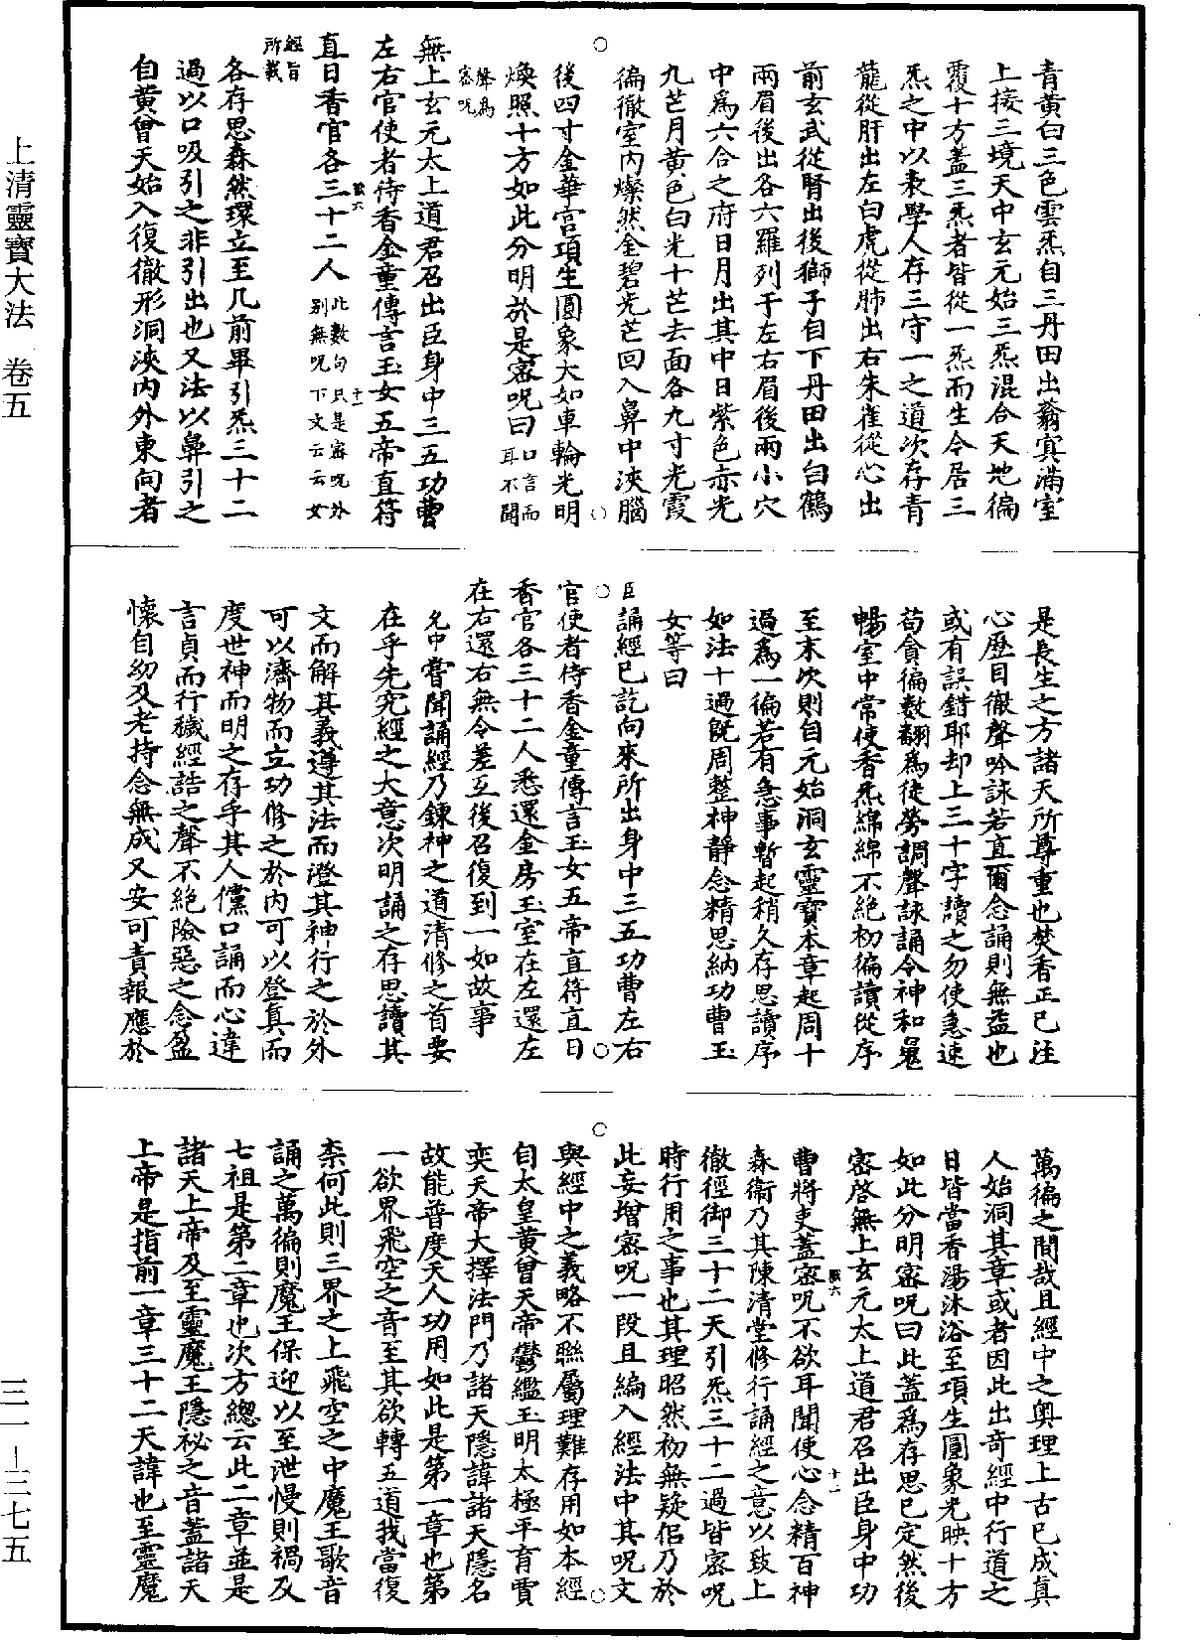 上清靈寶大法　卷五
三一－三七五
青黃白三色雲炁自三丹田出蓊冥滿室
上接三境天中玄元始三炁混合天地徧
覆十方蓋三炁者皆從一炁而生令居三
炁之中以表學人存三守一之道次存青
龍從肝出左白虎從肺出右朱雀從心出
前玄武從腎出後獅子自下丹田出白鶴
兩眉後出各六羅列于左右眉後兩小穴
中爲六合之府日月出其中日紫色赤光
九芒月黃色白光十芒去面各九寸光霞
徧徹室內燦然金碧光芒回入鼻中浹腦
後四寸金華宮項生圓象大如車輪光明
煥照十方如此分明於是密呪曰口言而耳不聞
聲爲密呪
無上玄元太上道君召出臣身中三五功曹
左右官使者侍香金童傳言玉女五帝直符
直日香官各三十二人此數句只是密呪外別無呪下文云云女
經旨所載
各存思森然環立至几前畢引炁三十二
過以口吸引之非引出也又法以鼻引之
自黃曾天始入復徹形洞浹內外東向者
是長生之方諸天所尊重也焚香正已注
心歷目徹聲吟詠若直爾念誦則無益也
或有誤錯耶却上三十字讀之勿使急速
苟貪徧數翻爲徒勞調聲詠誦令神和氣
暢室中常使香炁綿綿不絕初徧讀從序
至末次則自元始洞玄靈寶本章起周十
過爲一徧若有急事暫起稍久存思讀序
如法十過旣周整神靜念精思納功曹玉
女等曰
臣誦經已訖向來所出身中三五功曹左右
官使者侍香金童傳言玉女五帝直符直日
香官各三十二人悉還金房玉室在左還左
在右還右無令差互後召復到一如故事
允中嘗聞誦經乃鍊神之道清修之首要
在乎先究經之大意次明誦之存思讀其
文而解其義遵其法而澄其神行之於外
可以濟物而立功修之於內可以登真而
度世神而明之存乎其人儻口誦而心違
言貞而行穢經誥之聲不絕險惡之念盈
懷自幼及老持念無成又安可責報應於
萬徧之間哉且經中之奧理上古已成真
人始洞其章或者因此出奇經中行道之
日皆當香湯沐浴至項生圓象光映十方
如此分明密呪曰此蓋爲存思已定然後
密啓無上玄元太上道君召出臣身中功
曹將吏蓋密呪不欲耳聞使心念精百神
森衞乃其陳清堂修行誦經之意以致上
徹徑御三十二天引炁三十二過皆密呪
時行用之事也其理昭然初無疑侶乃於
此妄增密呪一段且編入經法中其呪文
與經中之義略不聯屬理難存用如本經
自太皇黃曾天帝鬱繿玉明太極平育賈
奕天帝大擇法門乃諸天隱諱諸天隱名
故能普度天人功用如此是第一章也第
一欲界飛空之音至其欲轉五道我當復
柰何此則三界之上飛空之中魔王歌音
誦之萬徧則魔王保迎以至泄慢則禍及
七祖是第二章也次方總云此二章並是
諸天上帝及至靈魔王隱祕之音蓋諸天
上帝是指前一章三十二天諱也至靈魔